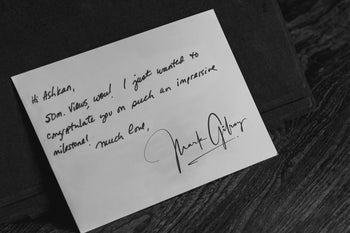 Hi Ashkan,
50m. views, wow! I just wanted to
congratulate you on such an impressive
milestone!
much love,
Mark Gilroy